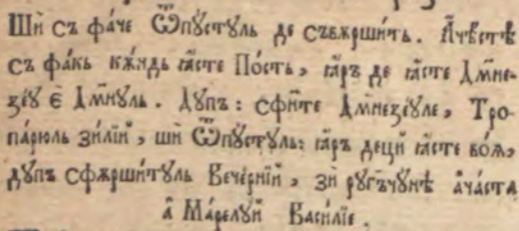 Шѝ съ фа́че Ѿпꙋстꙋль де съвѫрши́ть. А҆чѣ́стѣ
съ фа́кь кѫ́ндь ꙗ҆́сте По́сть, ꙗ҆́ръ де ꙗ҆́сте Дмне-
зе́ꙋ є҆̀ Дмнꙋль. Дꙋпъ: сфи́те Дмнезе́ꙋле, Тро-
па́рюль зи́лїй, шѝ Ѿпꙋстꙋль: ꙗ҆́ръ деци́ ꙗ҆́сте во́ѧ,
дꙋпъ сфѫрши́тꙋль Вече́рнїй, зѝ рꙋгъчꙋ́нѣ а҆ча́ста
а҆̀ Ма́релꙋй Васи́лїе.